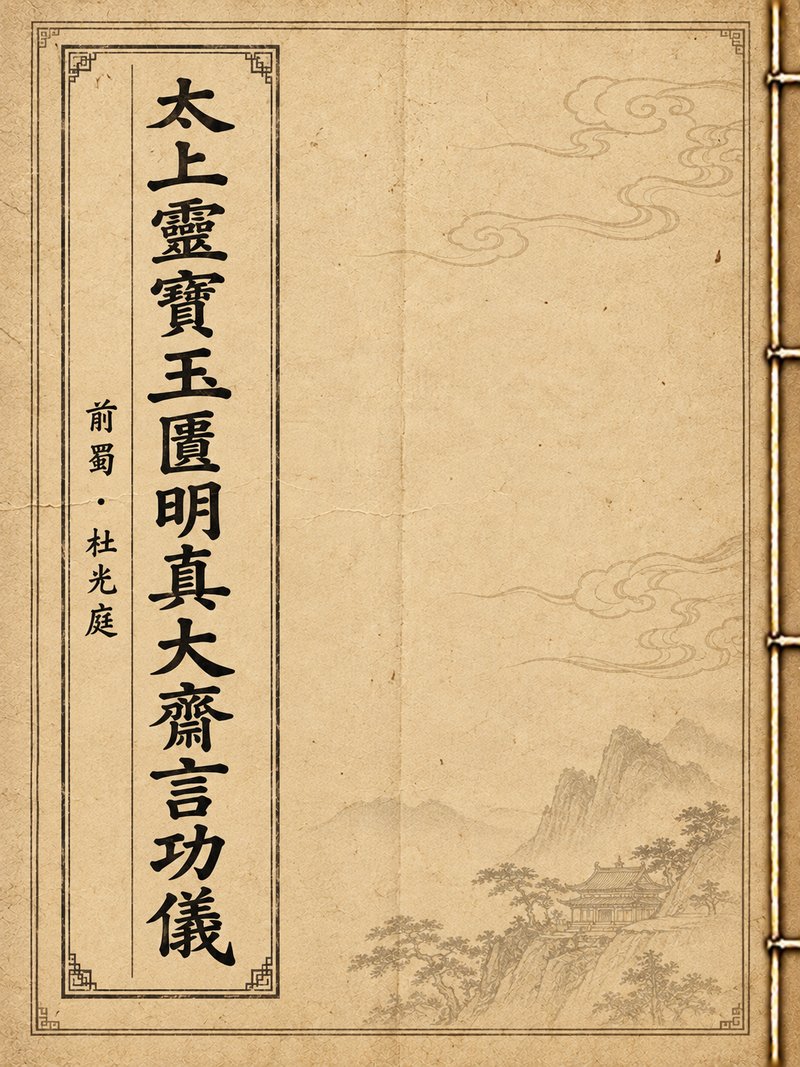 太上靈寶玉匱明真大齋言功儀
前蜀·杜光庭